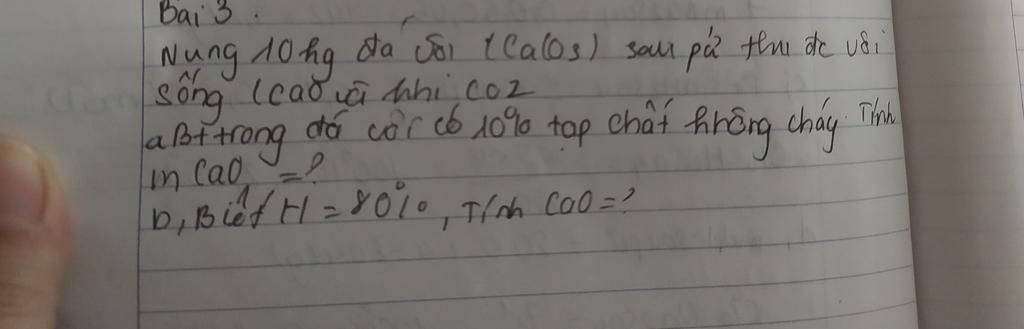 Bài 3.
Nung 10kg đá vôi (CaCO3) sau pứ thu đc vôi
sống (CaO và khí CO2
a Bt trong đá vôi có 10% tạp chất không cháy. Tính
m CaO = ?
b, Biết H = 80%, Tính CaO = ?